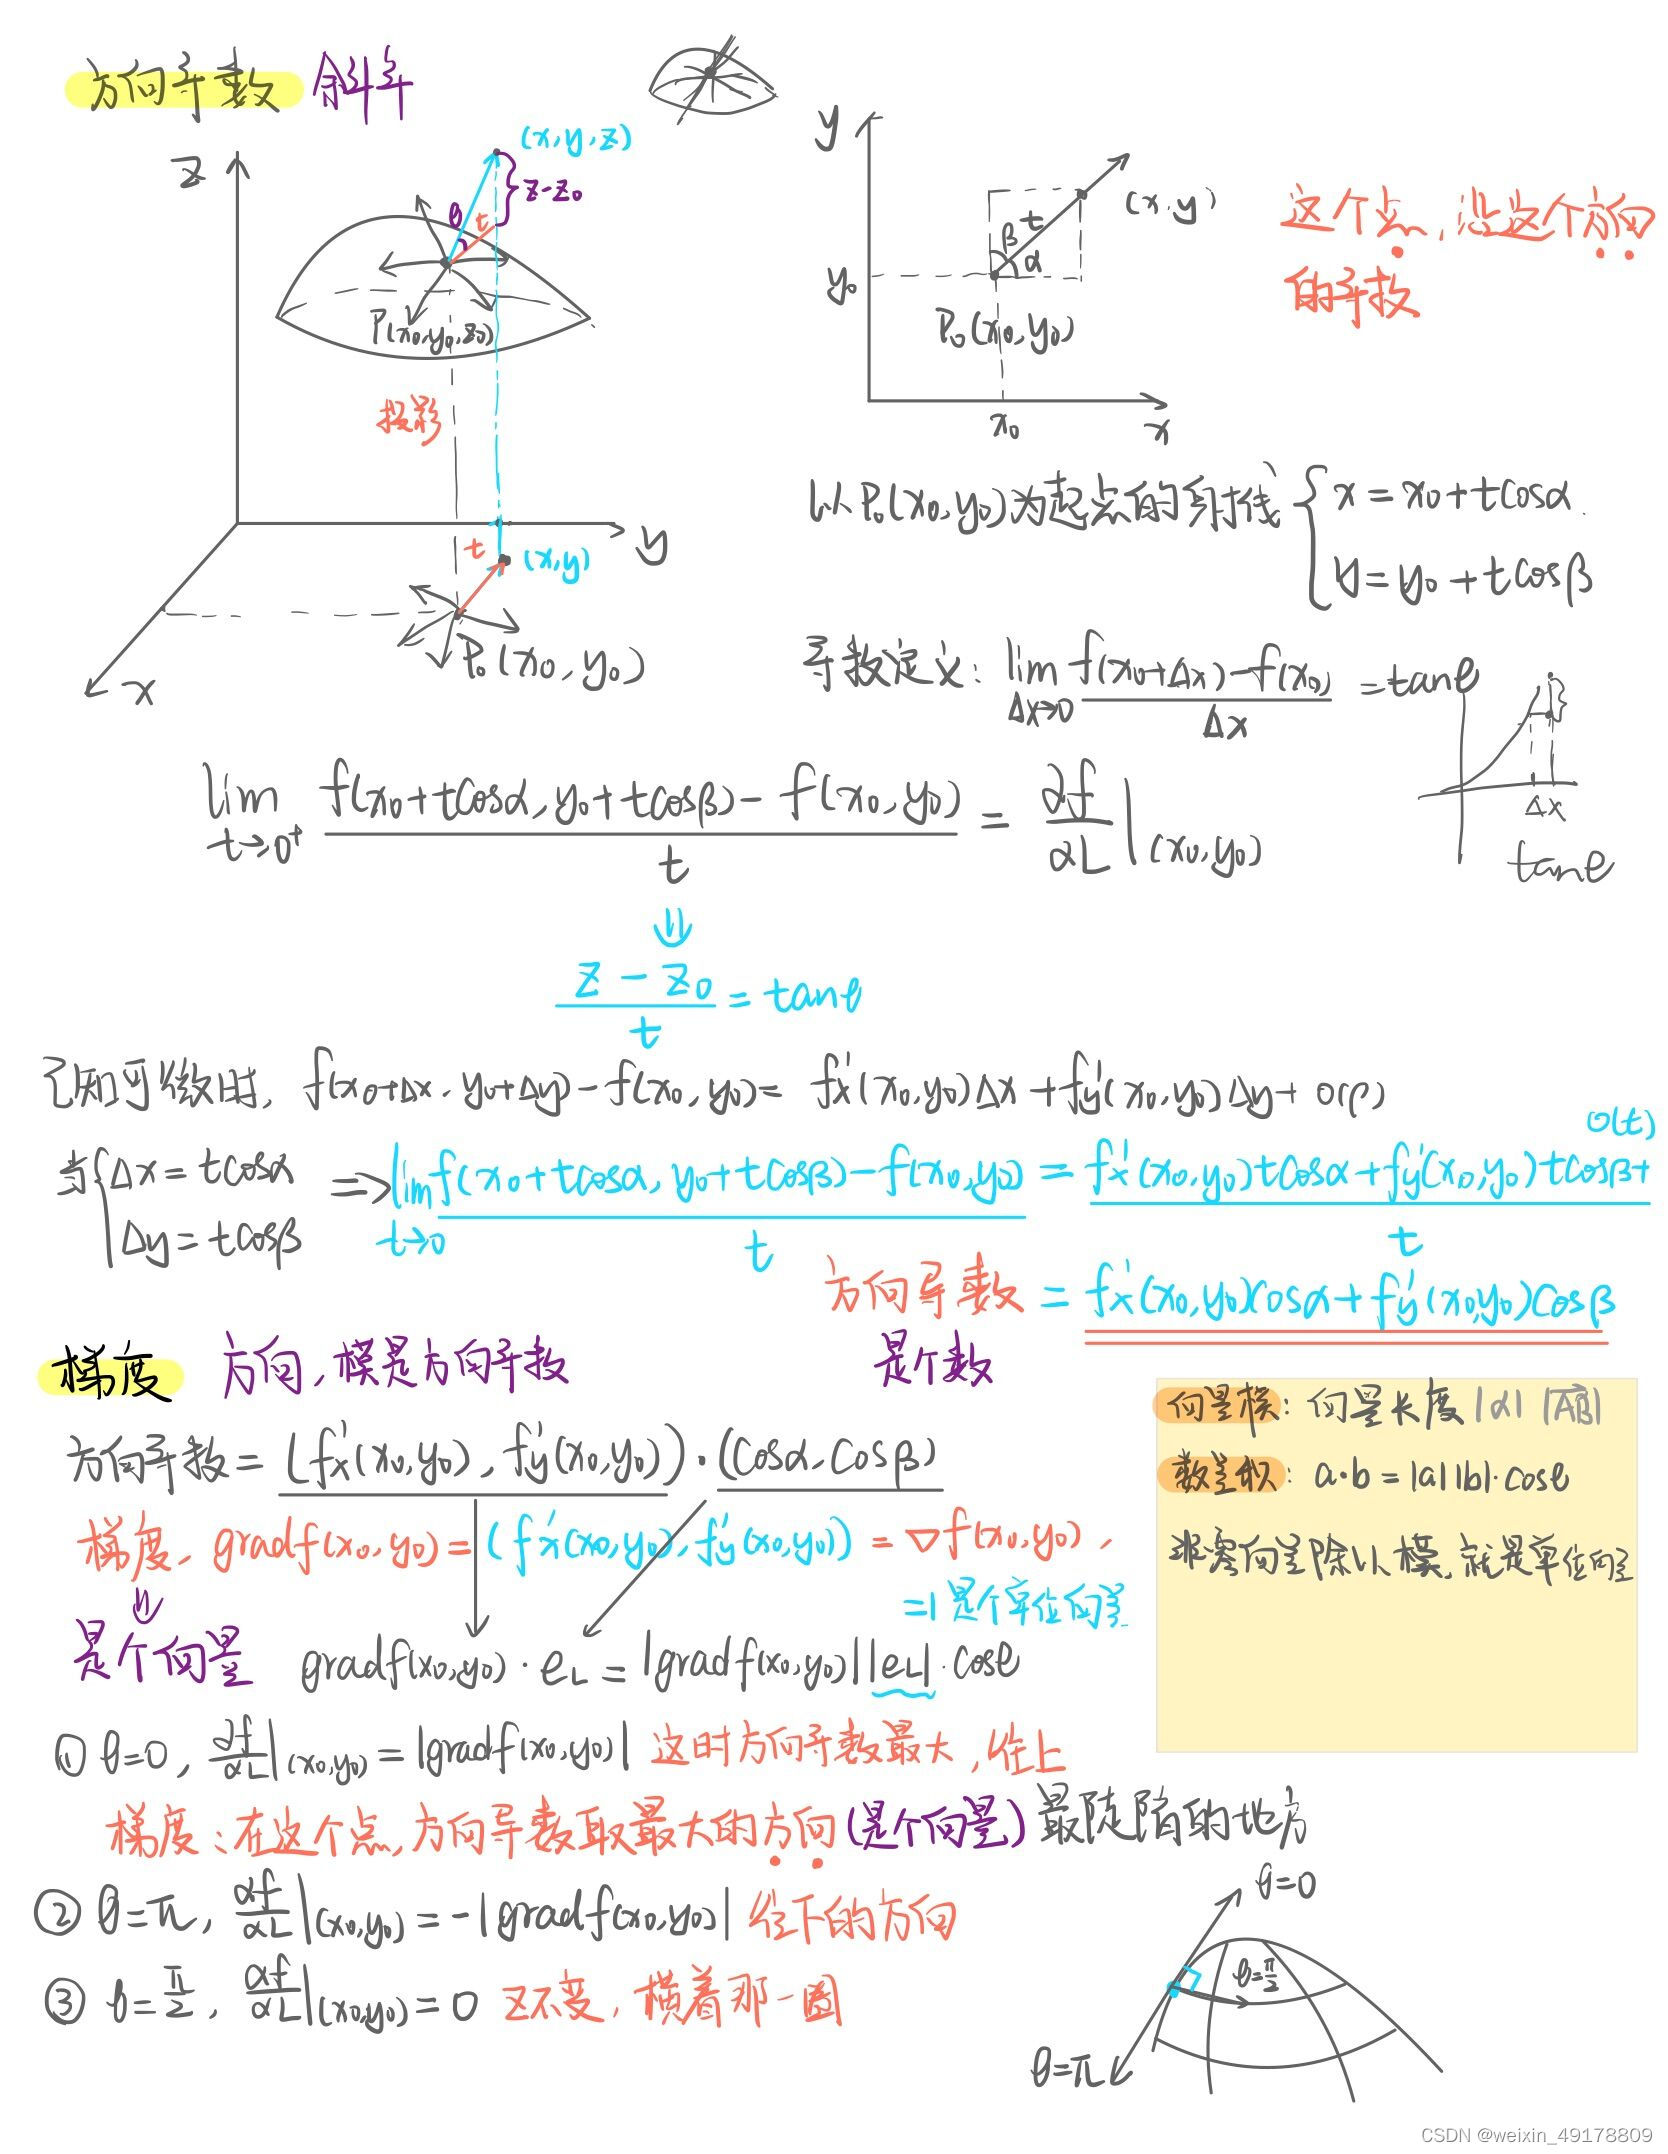 方向导数 斜率
(x,y,z)
z
z-z₀
θ
t
P(x₀,y₀,z₀)
投影
t
(x,y)
y
P₀(x₀,y₀)
x
y
(x,y)
t
β
α
y₀
P₀(x₀,y₀)
x₀
x
这个点,沿这个方向
的导数
以P₀(x₀,y₀)为起点的射线 { x=x₀+tcosα
y=y₀+tcosβ
导数定义: lim Δx→0 f(x₀+Δx)-f(x₀) / Δx =tanθ
Δx
tanθ
lim t→0⁺ f(x₀+tcosα,y₀+tcosβ)-f(x₀,y₀) / t = ∂f/∂L |(x₀,y₀)
⇓
z-z₀ / t = tanθ
已知可微时, f(x₀+Δx,y₀+Δy)-f(x₀,y₀)= fx'(x₀,y₀)Δx+fy'(x₀,y₀)Δy+o(ρ)
当{ Δx=tcosα
Δy=tcosβ
⇒ lim t→0 f(x₀+tcosα,y₀+tcosβ)-f(x₀,y₀) / t = fx'(x₀,y₀)tcosα+fy'(x₀,y₀)tcosβ+o(t) / t
方向导数 = fx'(x₀,y₀)cosα+fy'(x₀,y₀)cosβ
是个数
梯度 方向,模是方向导数
方向导数=(fx'(x₀,y₀),fy'(x₀,y₀))·(cosα,cosβ)
梯度, gradf(x₀,y₀)=(fx'(x₀,y₀),fy'(x₀,y₀))=∇f(x₀,y₀),
⇓
=1 是个单位向量
是个向量
gradf(x₀,y₀)·eL=|gradf(x₀,y₀)||eL|·cosθ
向量模: 向量长度|α| |AB|
数量积: a·b=|a||b|·cosθ
非零向量除以模,就是单位向量
① θ=0, ∂f/∂L |(x₀,y₀)=|gradf(x₀,y₀)| 这时方向导数最大,往上
梯度:在这个点,方向导数取最大的方向(是个向量) 最陡陗的地方
② θ=π, ∂f/∂L |(x₀,y₀)=-|gradf(x₀,y₀)| 往下的方向
③ θ=π/2, ∂f/∂L |(x₀,y₀)=0 z不变,横着那一圈
θ=0
θ=π/2
θ=π
CSDN @weixin_49178809